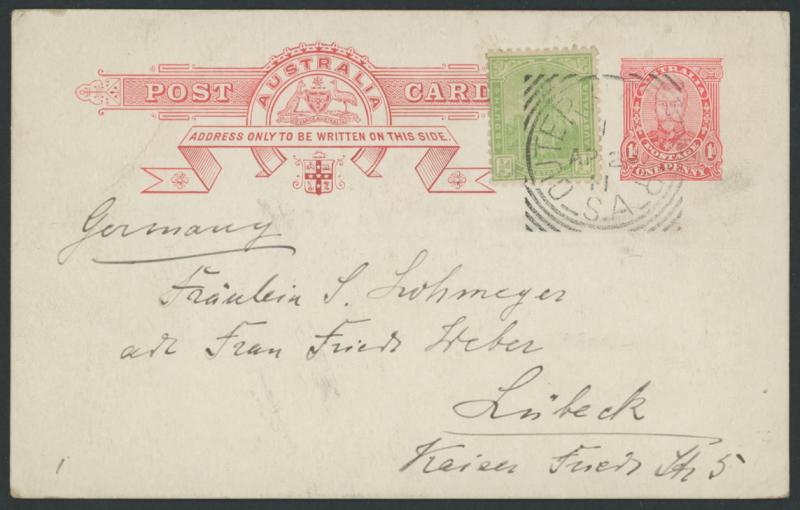 POST CARD
AUSTRALIA
ADDRESS ONLY TO BE WRITTEN ON THIS SIDE.
SOUTH
½ ½
OUTER
AP 2
11
S.A.
AUSTRALIA
POSTAGE
1D 1D
ONE PENNY
Germany
Fräulein S. Lohmeyer
adr Frau Friedr Weber
Lübeck
Kaiser Friedr Str 5
1